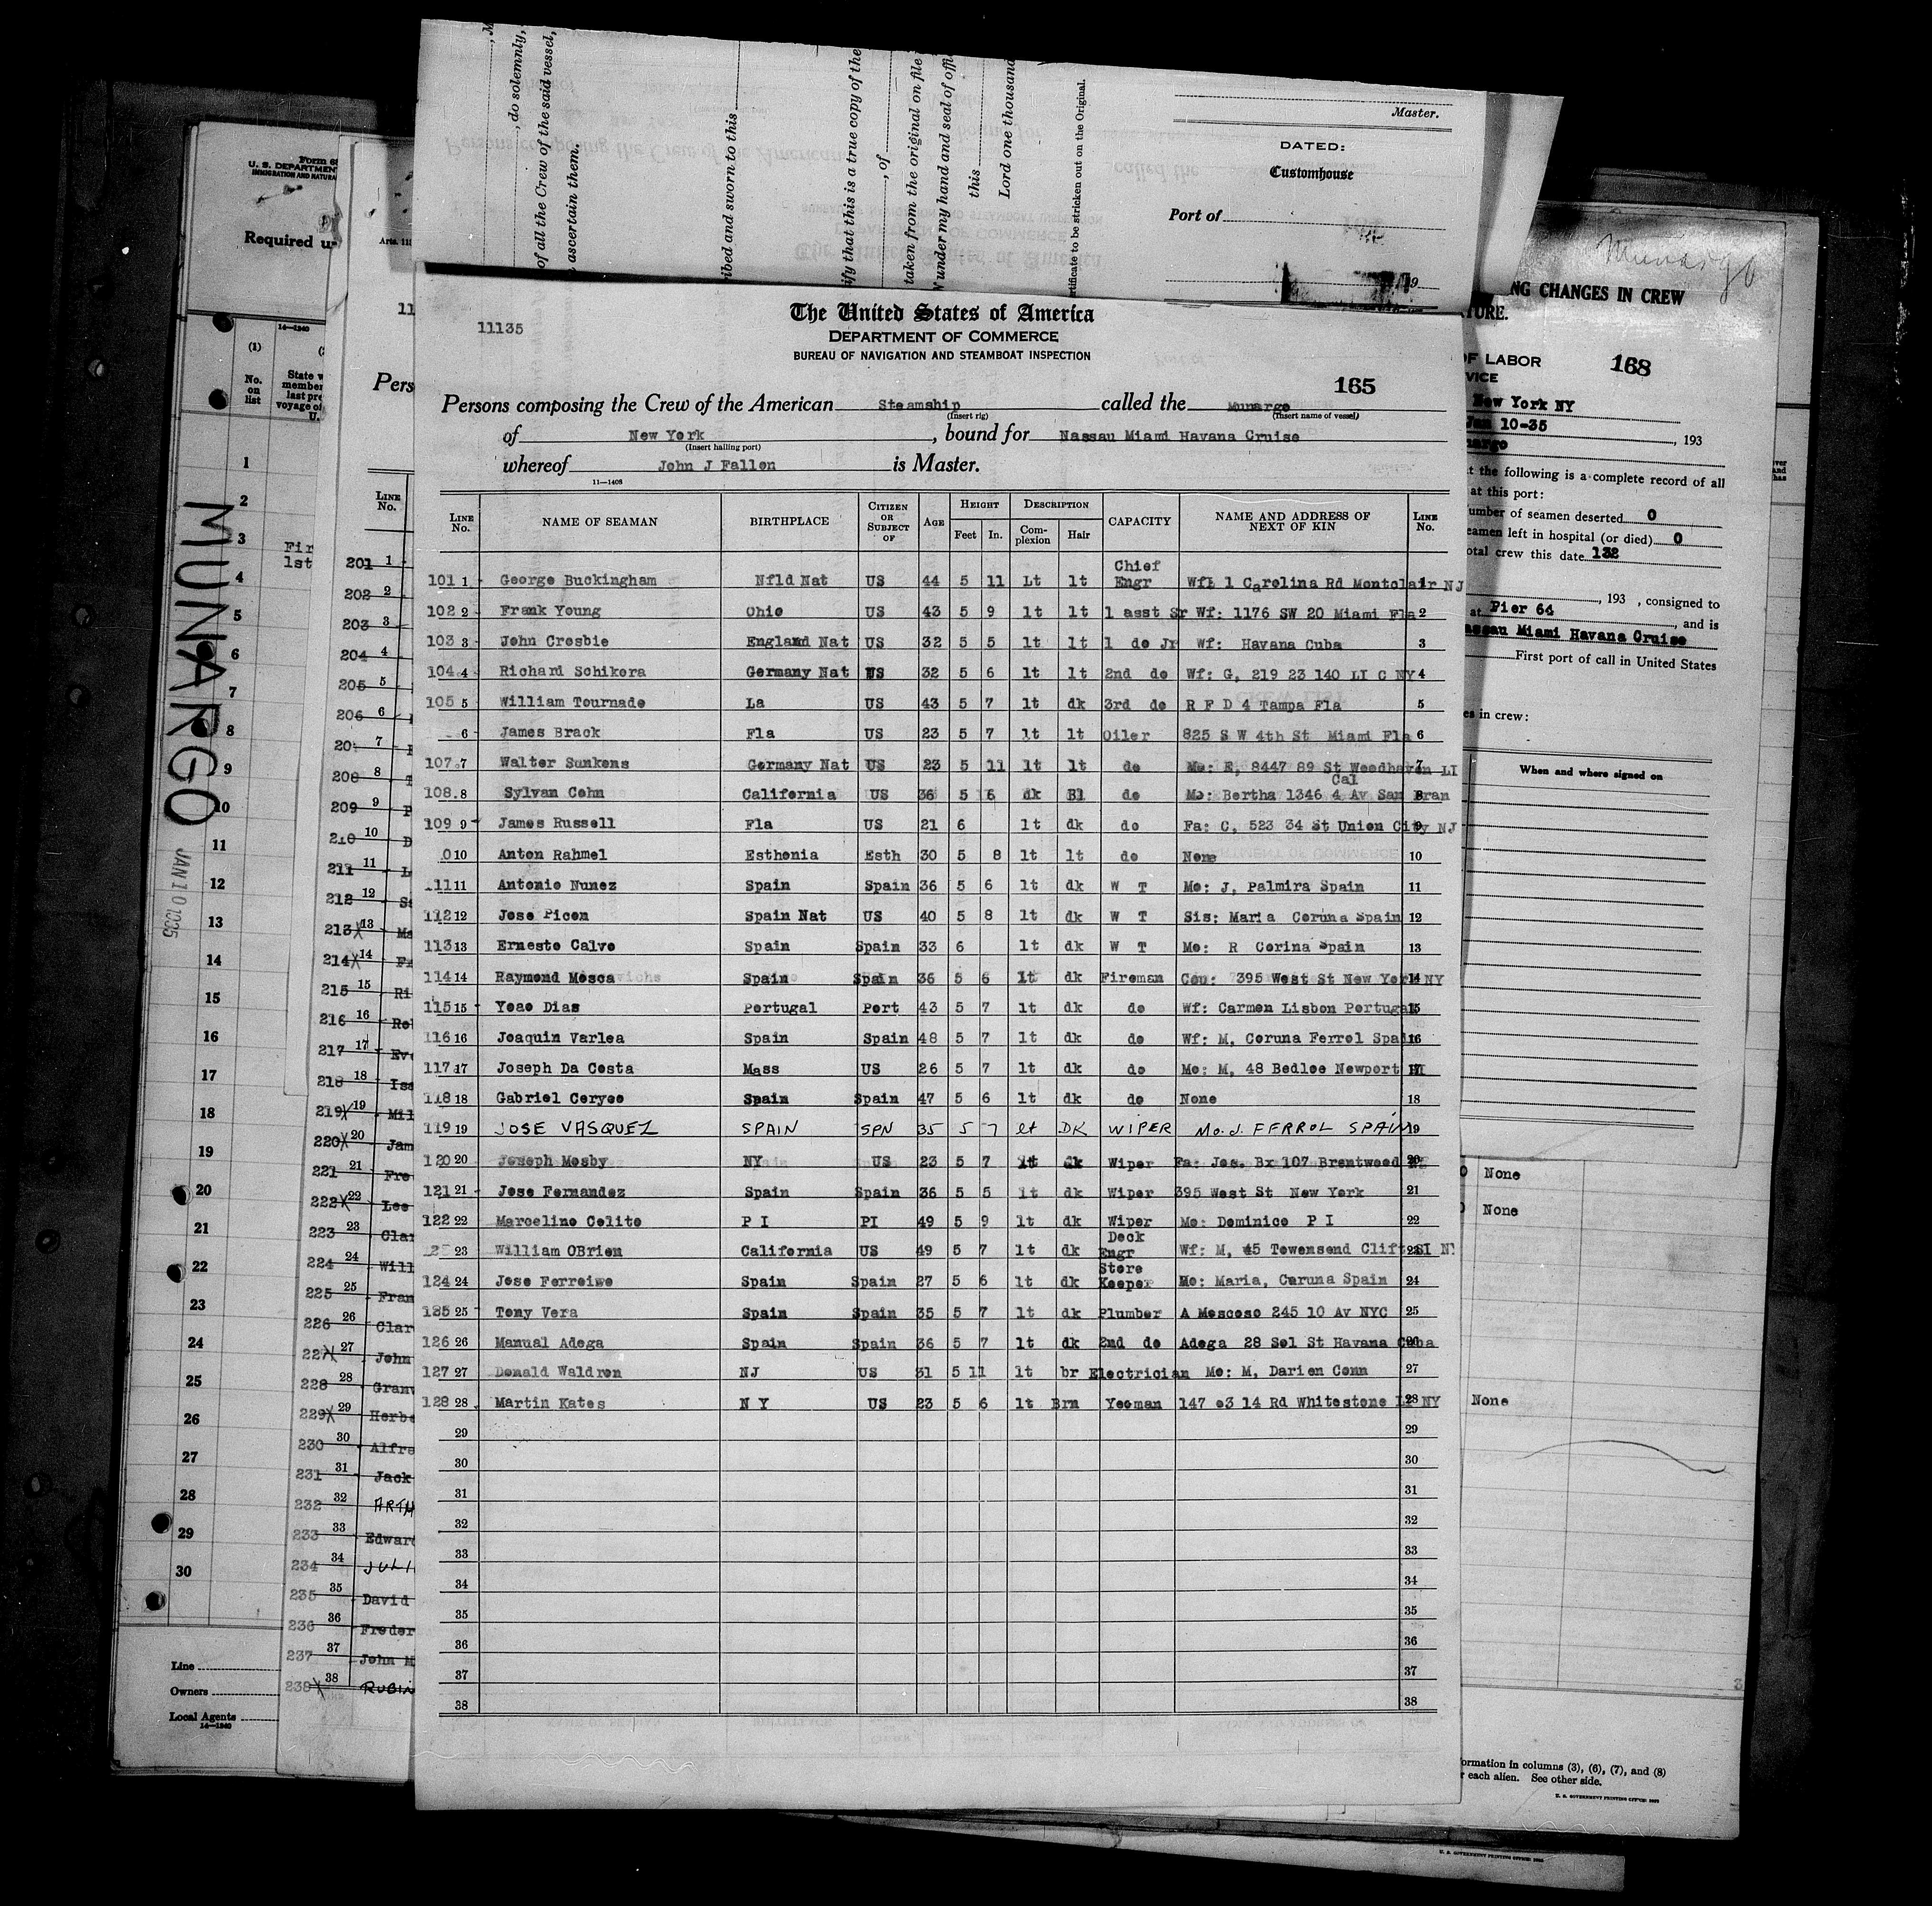 Master.
DATED:
Customhouse
Port of
, do solemnly,
of all the Crew of the said vessel,
ascertain them.
ribed and sworn to this
ify that this is a true copy of the
, of
taken from the original on file
under my hand and seal of offi
this
Lord one thousand
rtificate to be stricken out on the Original.
11135
The United States of America
DEPARTMENT OF COMMERCE
BUREAU OF NAVIGATION AND STEAMBOAT INSPECTION
165
Persons composing the Crew of the American Steamship called the Munargo
(Insert rig) (Insert name of vessel)
of New York, bound for Nassau Miami Havana Cruise
(Insert hailing port)
whereof John J Fallon is Master.
11—1408
LINE No. NAME OF SEAMAN BIRTHPLACE CITIZEN OR SUBJECT OF AGE HEIGHT Feet In. DESCRIPTION Complexion Hair CAPACITY NAME AND ADDRESS OF NEXT OF KIN LINE No.
101 1 George Buckingham Nfld Nat US 44 5 11 Lt lt Chief Engr Wf: 1 Carolina Rd Montclair NJ 1
102 2 Frank Young Ohio US 43 5 9 lt lt 1 asst Sr Wf: 1176 SW 20 Miami Fla 2
103 3 John Crosbie England Nat US 32 5 5 lt lt 1 do Jr Wf: Havana Cuba 3
104 4 Richard Schikora Germany Nat US 32 5 6 lt lt 2nd do Wf: G, 219 23 140 LI C NY 4
105 5 William Tournade La US 43 5 7 lt dk 3rd do R F D 4 Tampa Fla 5
6 James Brack Fla US 23 5 7 lt lt Oiler 825 S W 4th St Miami Fla 6
107 7 Walter Sunkens Germany Nat US 23 5 11 lt lt do Mo: E, 8447 89 St Woodhaven LI 7
108 8 Sylvan Cohn California US 36 5 6 dk Bl do Mo: Bertha 1346 4 Av San Fran Cal 8
109 9 James Russell Fla US 21 6 lt dk do Fa: C, 523 34 St Union City NJ 9
0 10 Anton Rahmel Esthonia Esth 30 5 8 lt lt do None 10
111 11 Antonio Nunez Spain Spain 36 5 6 lt dk W T Mo: J, Palmira Spain 11
112 12 Jose Picon Spain Nat US 40 5 8 lt dk W T Sis: Maria Coruna Spain 12
113 13 Ernesto Calvo Spain Spain 33 6 lt dk W T Mo: R Corina Spain 13
114 14 Raymond Mosca Spain Spain 36 5 6 lt dk Fireman Cou: 395 West St New York NY 14
115 15 Yoao Dias Portugal Port 43 5 7 lt dk do Wf: Carmen Lisbon Portugal 15
116 16 Joaquin Varlea Spain Spain 48 5 7 lt dk do Wf: M, Coruna Ferrol Spain 16
117 17 Joseph Da Costa Mass US 26 5 7 lt dk do Mo: M, 48 Bedloe Newport RI 17
118 18 Gabriel Ceryeo Spain Spain 47 5 6 lt dk do None 18
119 19 JOSE VASQUEZ SPAIN SPN 35 5 7 lt DK WIPER Mo. J. FERROL SPAIN 19
120 20 Joseph Mosby NY US 23 5 7 lt dk Wiper Fa: Jos. Bx 107 Brentwood 20
121 21 Jose Fernandez Spain Spain 36 5 5 lt dk Wiper 395 West St New York 21
122 22 Marcelino Colito P I PI 49 5 9 lt dk Wiper Mo: Dominico P I 22
23 William OBrien California US 49 5 7 lt dk Deck Engr Wf: M, 45 Townsend Clift SI NY 23
124 24 Jose Ferreiwo Spain Spain 27 5 6 lt dk Store Keeper Mo: Maria, Caruna Spain 24
125 25 Tony Vera Spain Spain 35 5 7 lt dk Plumber A Moscoso 245 10 Av NYC 25
126 26 Manual Adega Spain Spain 36 5 7 lt dk 2nd do Adega 28 Sol St Havana Cuba 26
127 27 Donald Waldron NJ US 31 5 11 lt br Electrician Mo: M, Darien Conn 27
128 28 Martin Kates N Y US 23 5 6 lt Brn Yeoman 147 03 14 Rd Whitestone LI NY 28
29 29
30 30
31 31
32 32
33 33
34 34
35 35
36 36
37 37
38 38
U. S. DEPARTMENT
IMMIGRATION AND NATURA
Required u
14—1240
(1)
No. on list
State w
member
last pre
voyage of
U.
MUNARGO
JAN 10 1935
1
2
3 Fir
1st
4
5
6
7
8
9
10
11
12
13
14
15
16
17
18
19
20
21
22
23
24
25
26
27
28
29
30
Line
Owners
Local Agents
14—1240
Arts. 111
11
Pers
LINE No.
201 1
202 2
203 3
204 4
205 5
206 6
20 7
208 8
209 9
210 10
211 11
212 12
213 13 Ma
214 14 Fr
215 15 Ri
216 16 Rol
217 17 Eve
218 18 Isa
219 19 Mil
220 20 Jam
221 21 Fre
222 22 Lee
223 23 Clar
224 24 Will
225 25 Fran
226 26 Clar
227 27 John
228 28 Gran
229 29 Herbe
230 30 Alfre
231 31 Jack
232 32 ARTH
233 33 Edward
234 34 JULI
235 35 David
236 36 Freder
237 37 John M
238 38 RUBIN
Munargo
NG CHANGES IN CREW
TURE.
OF LABOR
VICE
168
New York NY
Jan 10-35, 193
nargo
t the following is a complete record of all
at this port:
umber of seamen deserted 0
eamen left in hospital (or died) 0
otal crew this date 132
, 193 , consigned to
at Pier 64
, and is
assau Miami Havana Cruise
First port of call in United States
es in crew:
When and where signed on
None
None
None
ormation in columns (3), (6), (7), and (8)
r each alien. See other side.
U. S. GOVERNMENT PRINTING OFFICE
U. S. GOVERNMENT PRINTING OFFICE